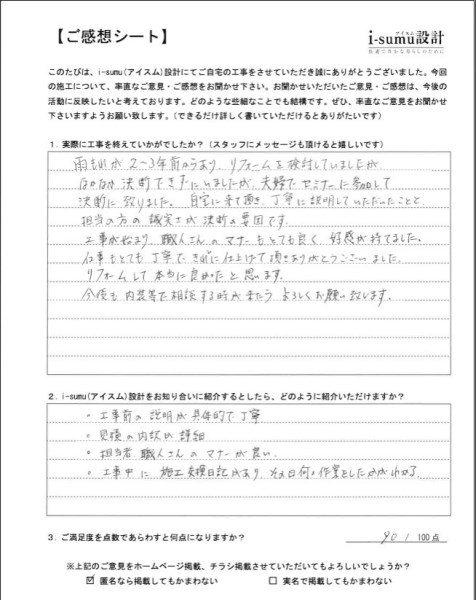 【ご感想シート】
アイスム
i-sumu設計
このたびは、i-sumu(アイスム)設計にてご自宅の工事をさせていただき誠にありがとうございました。今回
の施工について、率直なご意見・ご感想をお聞かせ下さい。お聞かせいただいたご意見・ご感想は、今後の
活動に反映したいと考えております。どのような些細なことでも結構です。ぜひ、率直なご意見をお聞かせ
下さいますようお願い致します。（できるだけ詳しく書いていただけるとありがたいです）
1. 実際に工事を終えていかがでしたか？（スタッフにメッセージも頂けると嬉しいです）
雨もりが2〜3年前からあり、リフォームを検討していましたが、
なかなか決断できずにいましたが、夫婦でセミナーに参加して
決断に致りました。自宅に来て頂き、丁寧に説明していただいたことと、
担当の方の誠実さが決断の要因です。
工事が始まり、職人さんのマナーもとても良く、好感が持てました。
仕事もとても丁寧できれいに仕上げて頂きありがとうございました。
リフォームして本当に良かったと思います。
今後も内装等で相談する時が来たらよろしくお願い致します。
2. i-sumu(アイスム)設計をお知り合いに紹介するとしたら、どのように紹介いただけますか？
・工事前の説明が具体的で丁寧
・見積の内訳が詳細
・担当者、職人さんのマナーが良い。
・工事中に施工実積日記があり、その日何の作業をしたかがわかる
3. ご満足度を点数であらわすと何点になりますか？
90 / 100点
※上記のご意見をホームページ掲載、チラシ掲載させていただいてもよろしいでしょうか？
☑ 匿名なら掲載してもかまわない
□ 実名で掲載してもかまわない